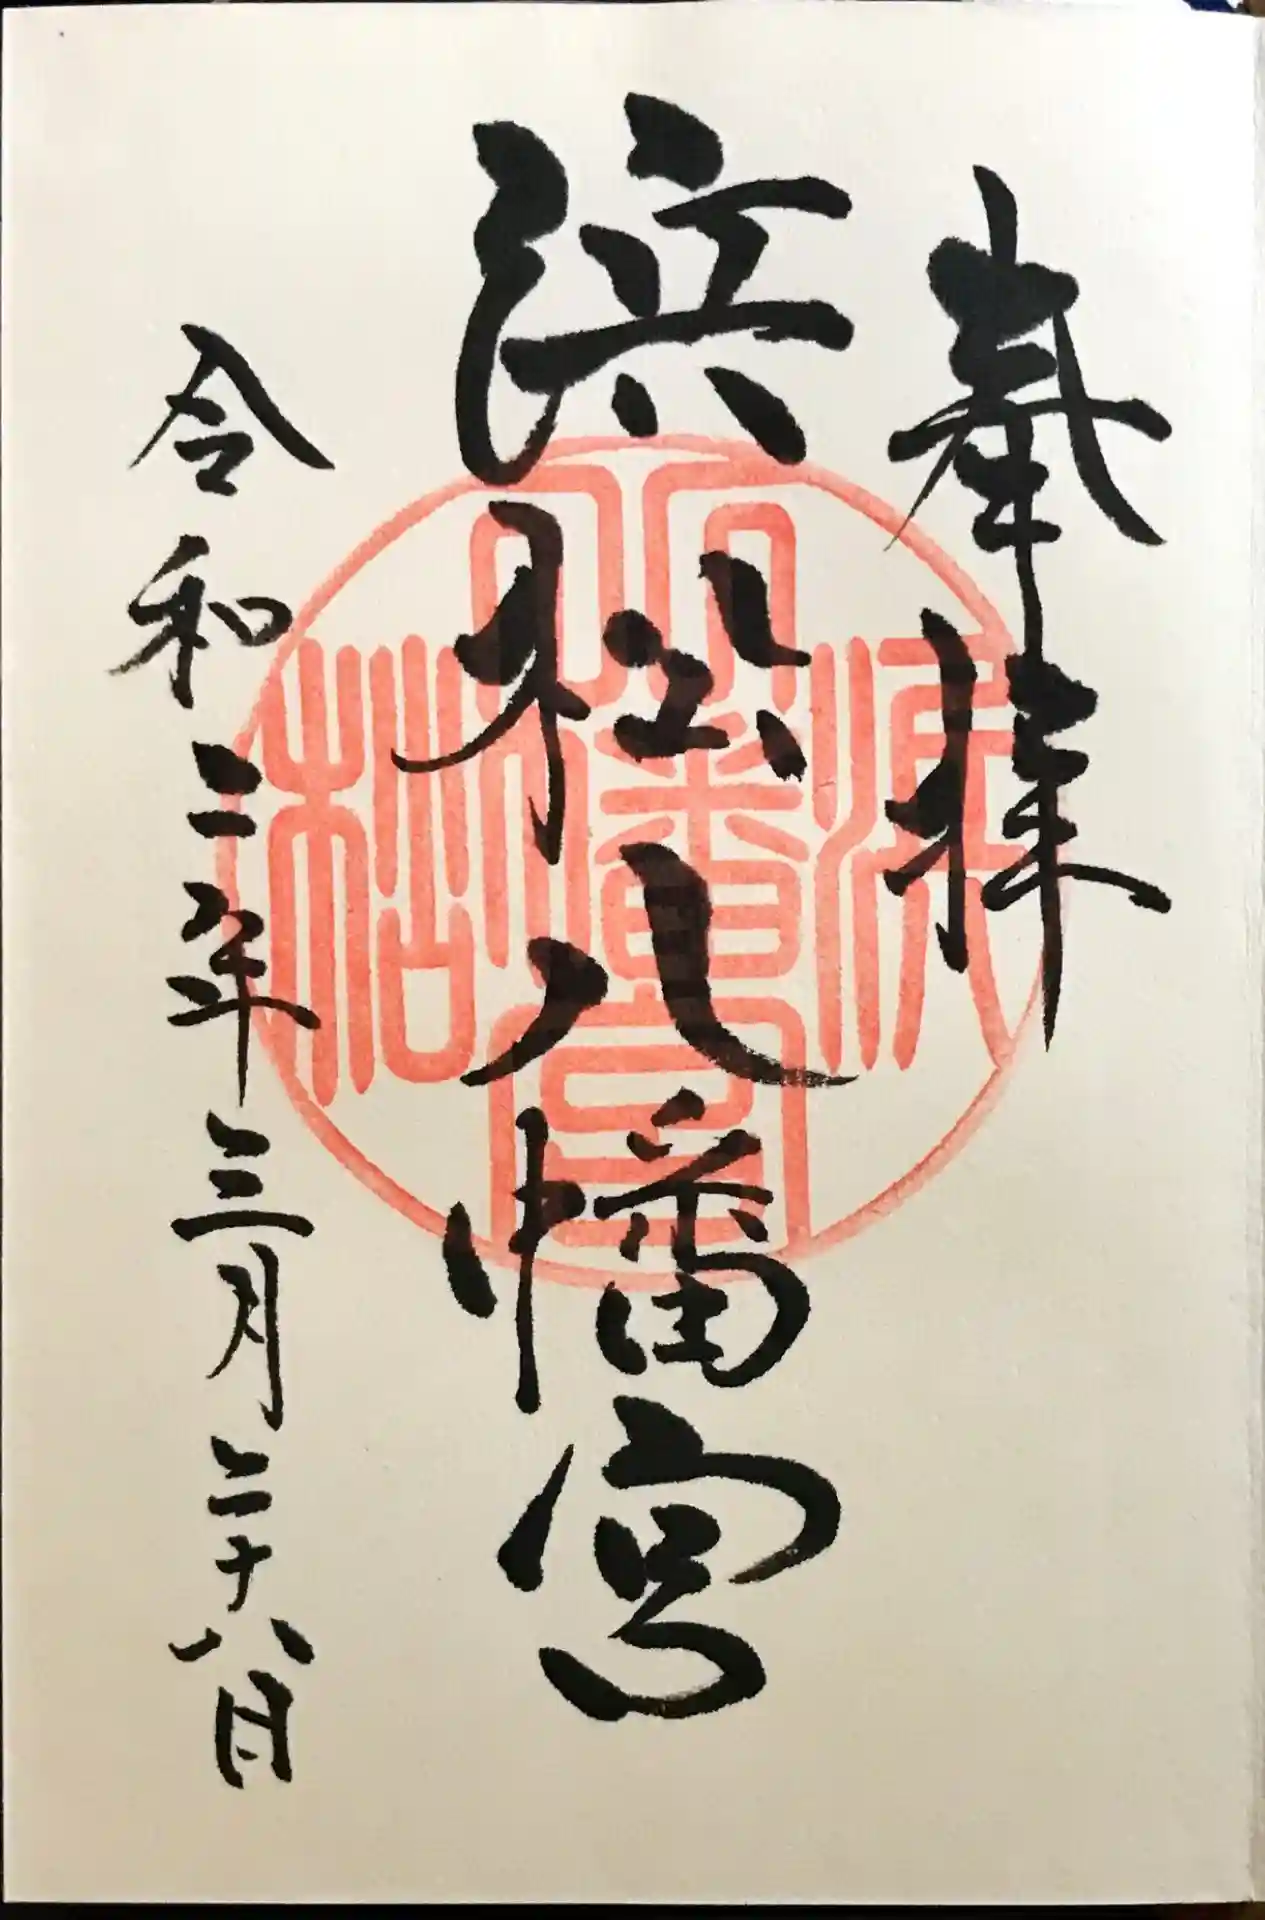 奉拝
浜松八幡宮
令和二年三月二十八日
浜松八幡宮